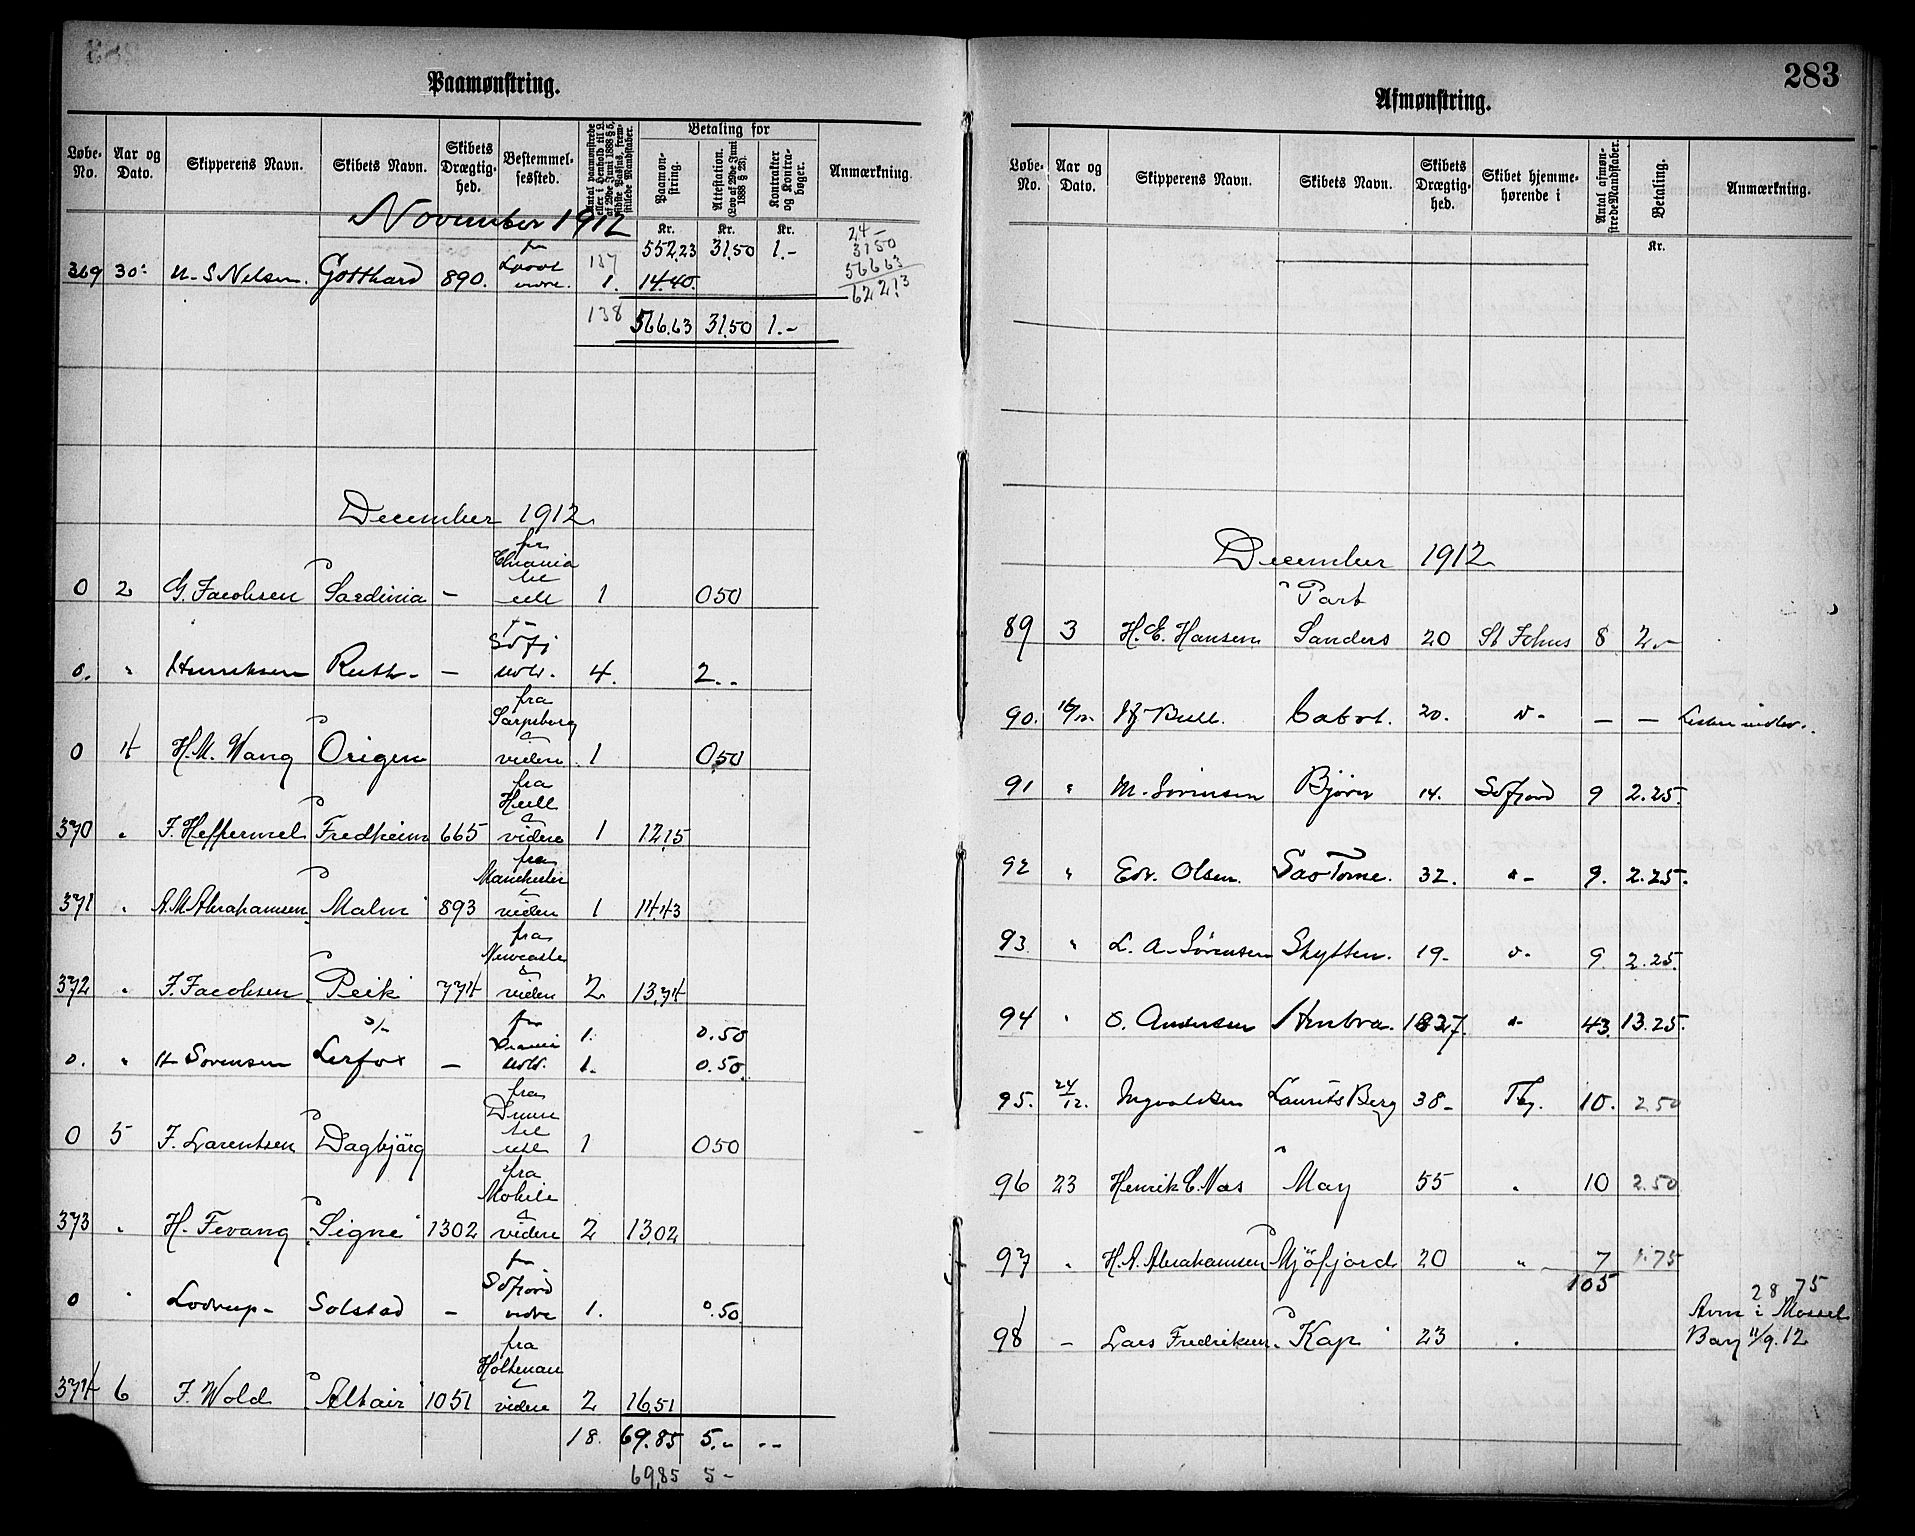 283
Paamønstring.
Løbe-No. Aar og Dato. Skipperens Navn. Skibets Navn. Skibets Drægtig-hed. Bestemmel-sessted. Betaling for Paamøn-string. Attestation. (Lov af 29de Juni 1888 § 23). Kontrakter og Kontra-bøger. Anmærkning.
November 1912 Kr. Kr. Kr.
fra 137 552,23 31,50 1.- 24-
31 50
566 63
369 30 N. S Nelsen. Gotthard 890. 1. 14.40. 622,13
138 566.63 31,50 1.-
December 1912
fra
til
0 2 G. Jacobsen Sardinia - 1 0 50
0. " Henriksen Ruth - - 4. 2. -
fra
Sarpsborg
0 4 H. M. Wang Origen videre 1 0,50
fra
Hull
370 " F. Heffermel Fredheim 665 videre 1 12,15
fra
Manchester
371 " A. M Abrahamsen "Malm" 893 viden 1 14,43
fra
Newcastle
372 " F. Jacobsen "Peik" 774 viden 2 13,74
fra
1. 0.50
0. " H Sorensen Lerfos - 1. 0.50.
fra
til
0 5 F. Larentsen Dagbjørg 1 0 50
fra
Mobile
373 " H. Fevang "Signe" 1302 videre 2 13,02
fra
0 " Lodrup - Solstad - 1. 0.50
fra
Holtenau
374 6 F. Wold "Altair" 1051 videre 2 16,51
18. 69.85 5.- --
69,85 5 -
Afmønstring.
Løbe-No. Aar og Dato. Skipperens Navn. Skibets Navn. Skibets Drægtig-hed. Skibet hjemme-hørende i Antal afmøn-strede Mandskaber. Betaling. Anmærkning.
Kr.
December 1912
Port
89 3 H. E. Hansen Sanders 20 St Johns 8 2.-
90. 16/12 Hj Bull. Cabot. 20. - -
91 " M. Sørensen Bjørn 14. Søfjord 9 2.25.
92 " Edv. Olsen. Sao Tome. 32. " - 9. 2.25.
93. " L. A. Sørensen Skytten. 19 - 9. 2.25.
94 " O. Andersen 1837. " - 43. 13.25.
95. 24/12. Ingvaldsen Laurits Berg 38 - Tbg. 10. 2.50
96 23 Henrik C. Næs May 55 " 10 2.50
97 " H. A. Abrahamsen Mjöfjord 20 " 7 1.75
105
28 75
98 - Lars Fredriksen "Kap" 23 " Avm i Mossel
Bay 11/9.12